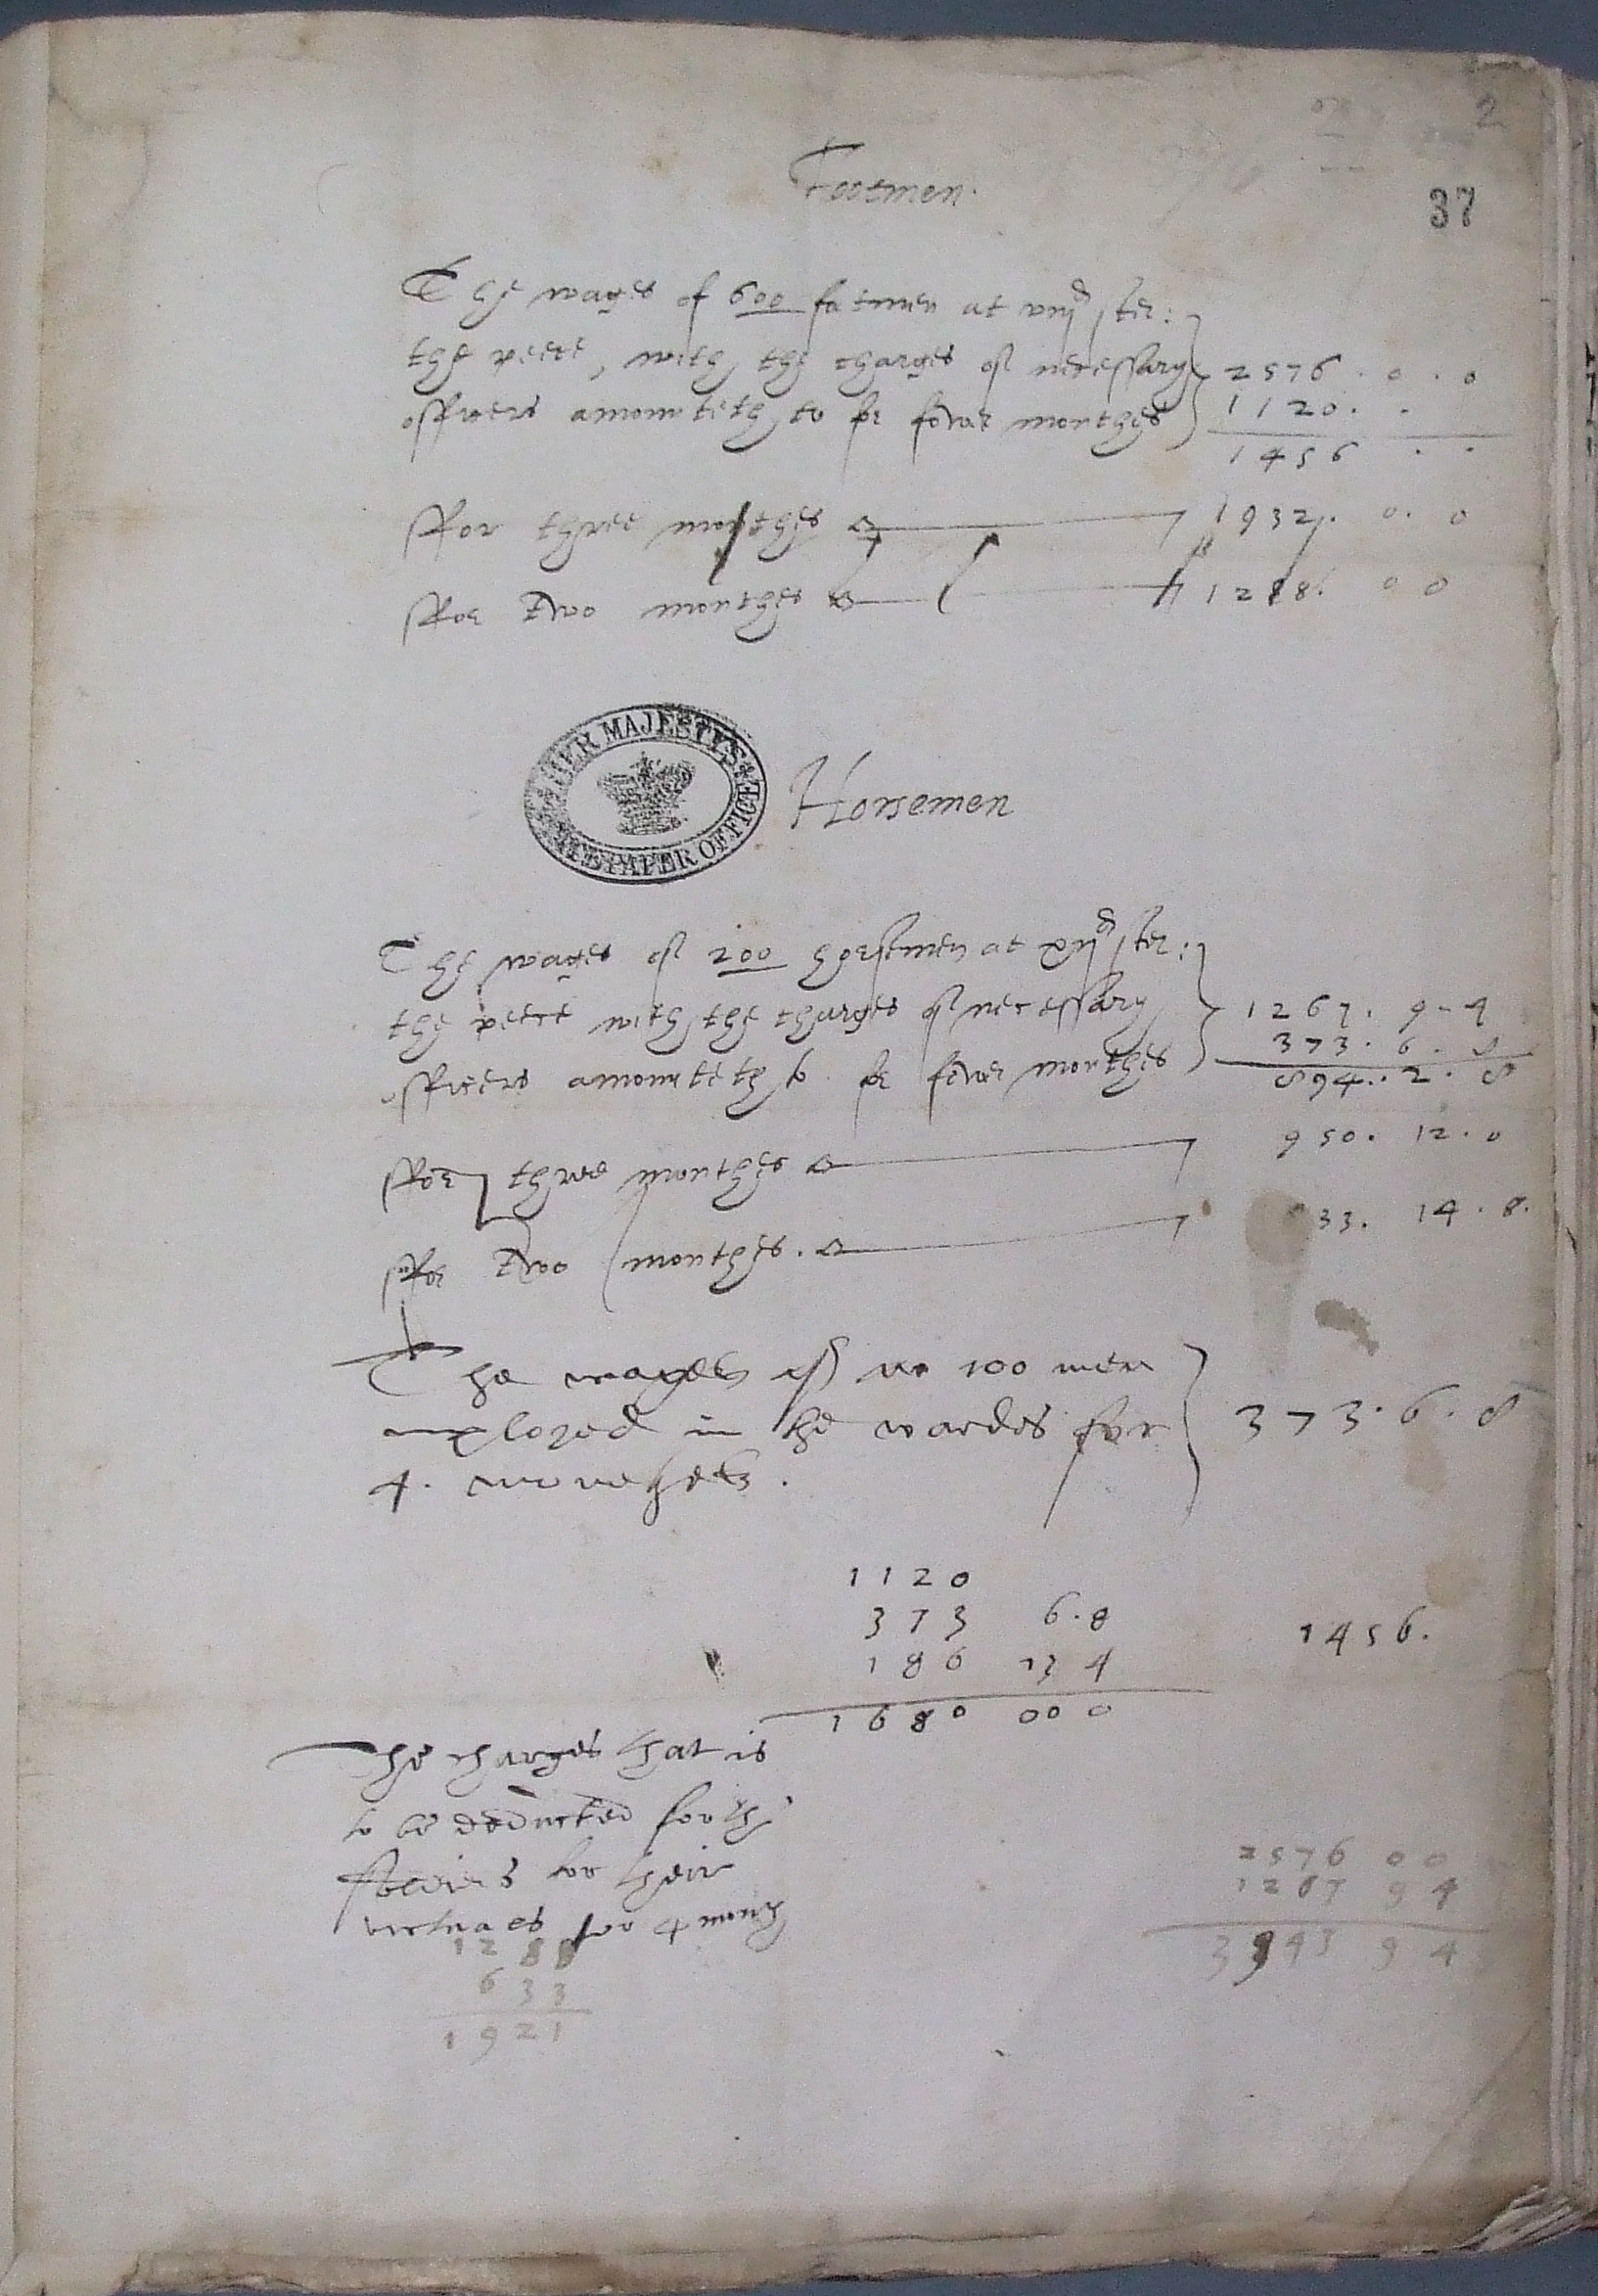 2
37
Footmen.
The wages of 600 fotmen at viijd ster:
the peece, with the charges of necessary 2576 . 0 . 0
officers amounteth to for fower monthes 1120 . .
1456 . .
ffor three monthes 1932 . 0 . 0
ffor two monthes 1288 . 0 0
HER MAJESTY'S STATE PAPER OFFICE
Horsemen
The wages of 200 horsemen at xijd ster:
the peece with the charges of necessary 1267 . 9 . 4
officers amounteth to for fower monthes 373 . 6 . 8
894 . 2 . 8
ffor three monthes 950 . 12 . 0
ffor two monthes . 33 . 14 . 8 .
The wages of 100 men
imployed in the wardes for 373 . 6 . 8
4 . monethes .
1120
373 6 . 8 1456 .
186 13 4
1680 00 0
The charges that is
to be deducted for the
for their
victuales for 4 month
2576 0 0
1267 9 4
3843 9 4
1288
633
1921